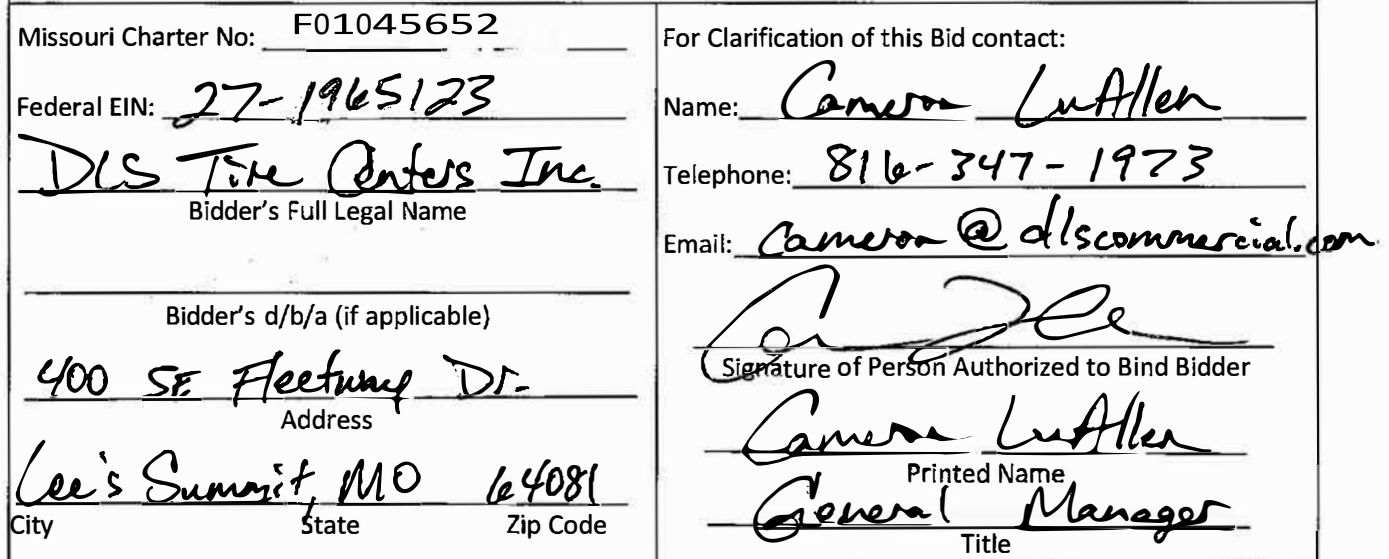 Missouri Charter No: F01045652
Federal EIN: 27-1965123
DLS Tire Centers Inc.
Bidder's Full Legal Name
Bidder's d/b/a (if applicable)
400 SE Fleetway Dr.
Address
Lee's Summit, MO 64081
City State Zip Code
For Clarification of this Bid contact:
Name: Cameron LuAllen
Telephone: 816-347-1973
Email: Cameron@dlscommercial.com
Signature of Person Authorized to Bind Bidder
Cameron LuAllen
Printed Name
General Manager
Title